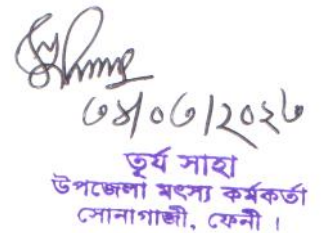 ০৬/২০২৩
তূর্য সাহা
উপজেলা মৎস্য কর্মকর্তা
সোনাগাজী, ফেনী ।